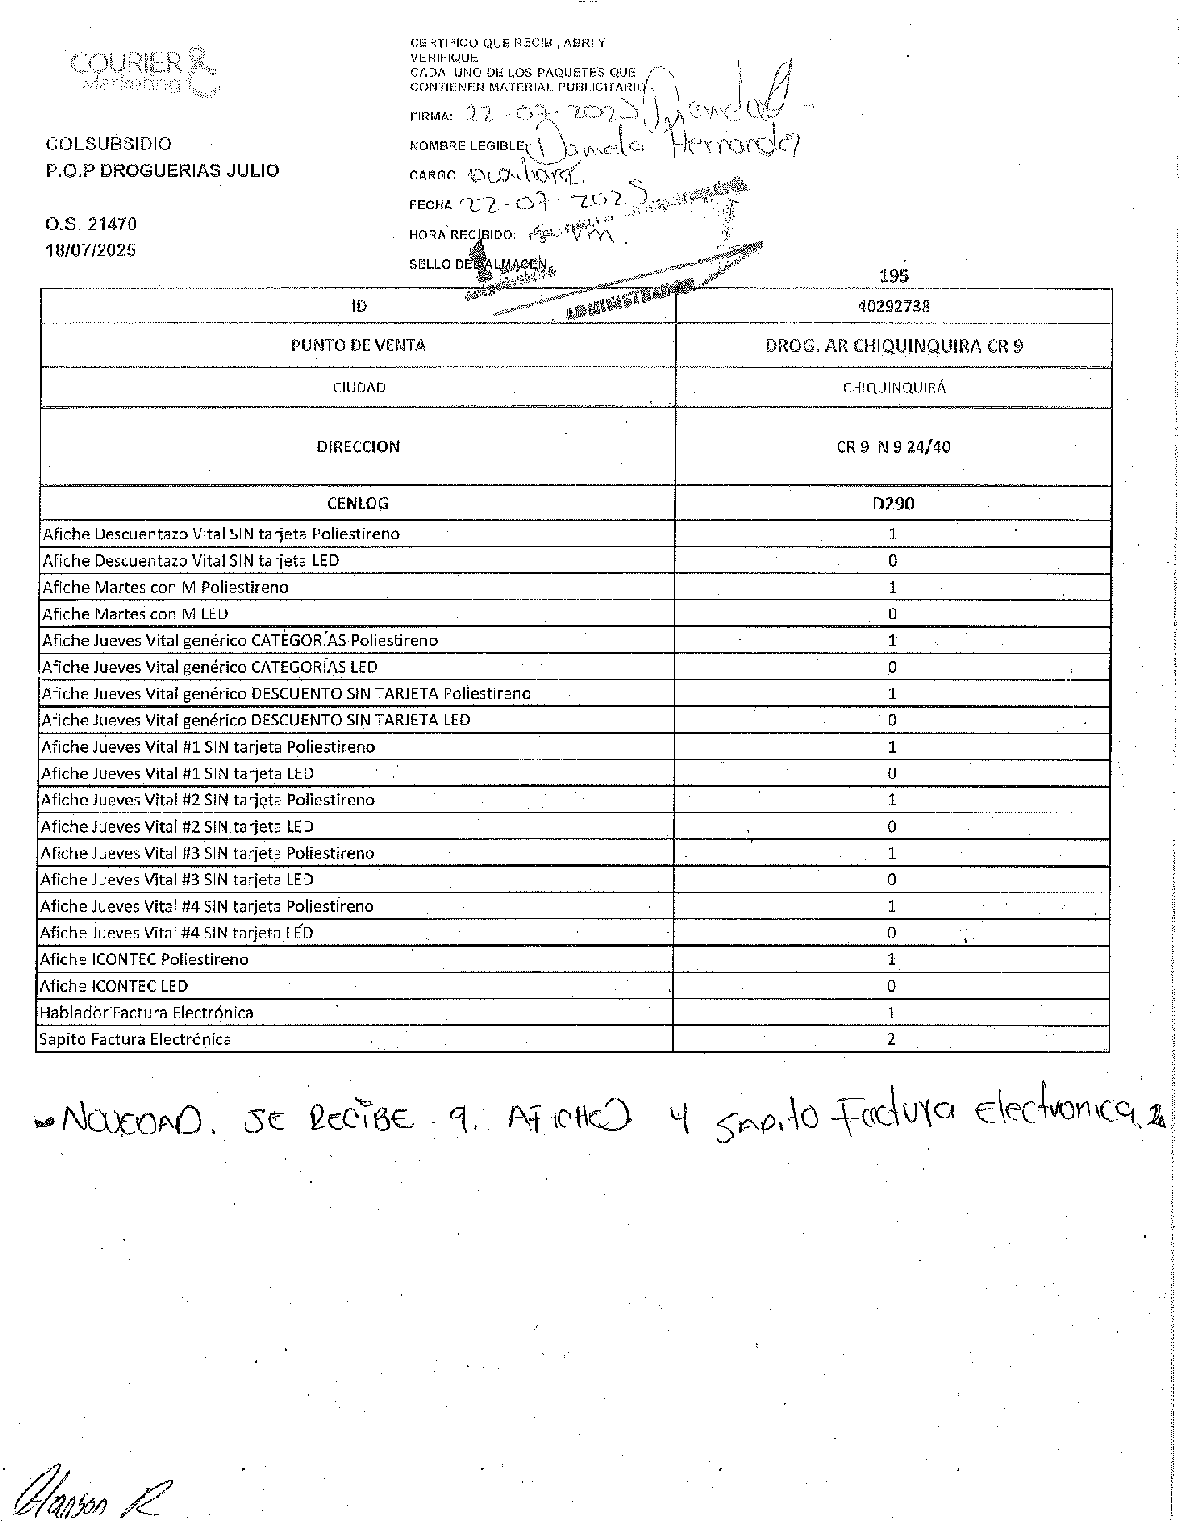 COURIER
Marketing
COLSUBSIDIO
P.O.P DROGUERIAS JULIO
O.S. 21470
18/07/2025
CERTIFICO QUE RECIBI, ABRI Y
VERIFIQUE
CADA UNO DE LOS PAQUETES QUE
CONTIENEN MATERIAL PUBLICITARIO.
FIRMA: 22-07-2025
NOMBRE LEGIBLE: Daniela Hernandez
CARGO: Auxiliar
FECHA 22-07-2025
HORA RECIBIDO:
SELLO DEL ALMACEN
ADMINISTRADOR
195
ID 40292738
PUNTO DE VENTA DROG. AR CHIQUINQUIRA CR 9
CIUDAD CHIQUINQUIRÁ
DIRECCION CR 9 N 9 24/40
CENLOG D290
Afiche Descuentazo Vital SIN tarjeta Poliestireno 1
Afiche Descuentazo Vital SIN tarjeta LED 0
Afiche Martes con M Poliestireno 1
Afiche Martes con M LED 0
Afiche Jueves Vital genérico CATEGORÍAS Poliestireno 1
Afiche Jueves Vital genérico CATEGORÍAS LED 0
Afiche Jueves Vital genérico DESCUENTO SIN TARJETA Poliestireno 1
Afiche Jueves Vital genérico DESCUENTO SIN TARJETA LED 0
Afiche Jueves Vital #1 SIN tarjeta Poliestireno 1
Afiche Jueves Vital #1 SIN tarjeta LED 0
Afiche Jueves Vital #2 SIN tarjeta Poliestireno 1
Afiche Jueves Vital #2 SIN tarjeta LED 0
Afiche Jueves Vital #3 SIN tarjeta Poliestireno 1
Afiche Jueves Vital #3 SIN tarjeta LED 0
Afiche Jueves Vital #4 SIN tarjeta Poliestireno 1
Afiche Jueves Vital #4 SIN tarjeta LED 0
Afiche ICONTEC Poliestireno 1
Afiche ICONTEC LED 0
Hablador Factura Electrónica 1
Sapito Factura Electrónica 2
NOVEDAD. SE RECIBE 9. AFICHES Y SAPITO Factura Electronica. 2
R